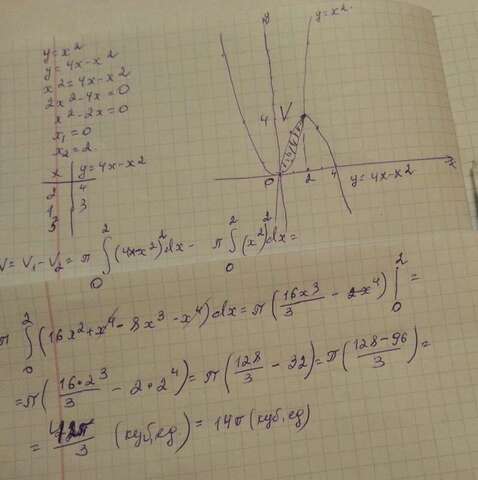 y=x²
y=4x-x²
x²=4x-x²
2x²-4x=0
x²-2x=0
x₁=0
x₂=2
x | y=4x-x²
2 | 4
1 | 3
3
y
y=x²
4
V
0 2 4 x
y=4x-x²
V=V₁-V₂=π∫₀²(4x-x²)²dx-π∫₀²(x²)²dx=
π∫₀²(16x²+x⁴-8x³-x⁴)dx=π(16x³/3-2x⁴)|₀²=
=π(16·2³/3-2·2⁴)=π(128/3-32)=π(128-96/3)=
=42π/3 (куб,ед)=14π(куб,ед)